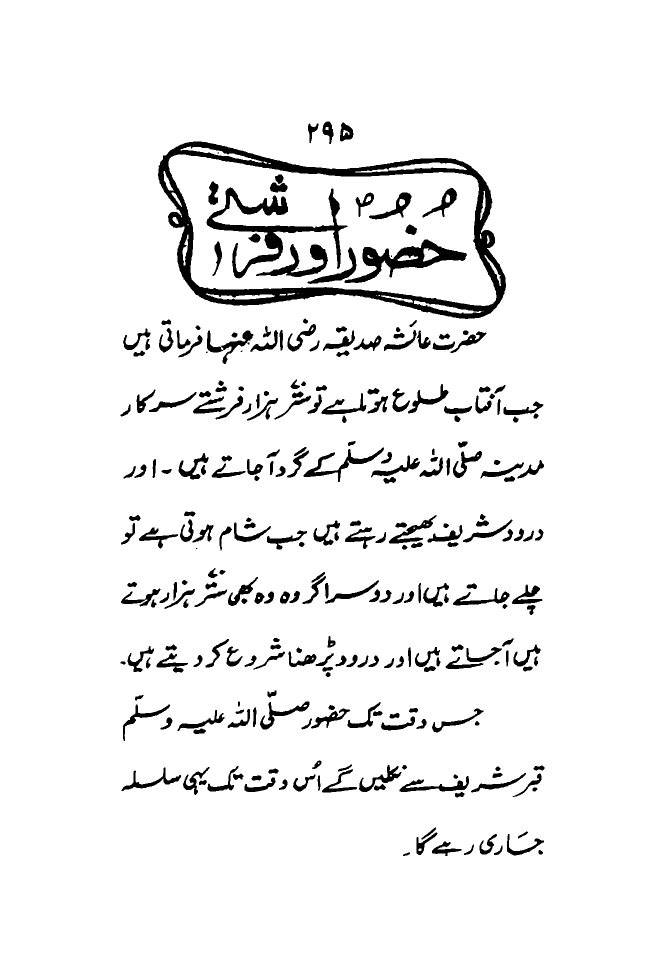 ۲۹۵
حضور اور فرشتے
حضرت عائشہ صدیقہ رضی اللہ عنہا فرماتی ہیں
جب آفتاب طلوع ہوتا ہے تو ستّر ہزار فرشتے سرکار
مدینہ صلّی اللہ علیہ وسلّم کے گرد آ جاتے ہیں ۔ اور
درود شریف بھیجتے رہتے ہیں جب شام ہوتی ہے تو
چلے جاتے ہیں اور دوسرا گروہ وہ بھی ستّر ہزار ہوتے
ہیں آ جاتے ہیں اور درود پڑھنا شروع کر دیتے ہیں.
جس وقت تک حضور صلّی اللہ علیہ وسلّم
قبر شریف سے نکلیں گے اُس وقت تک یہی سلسلہ
جاری رہے گا۔